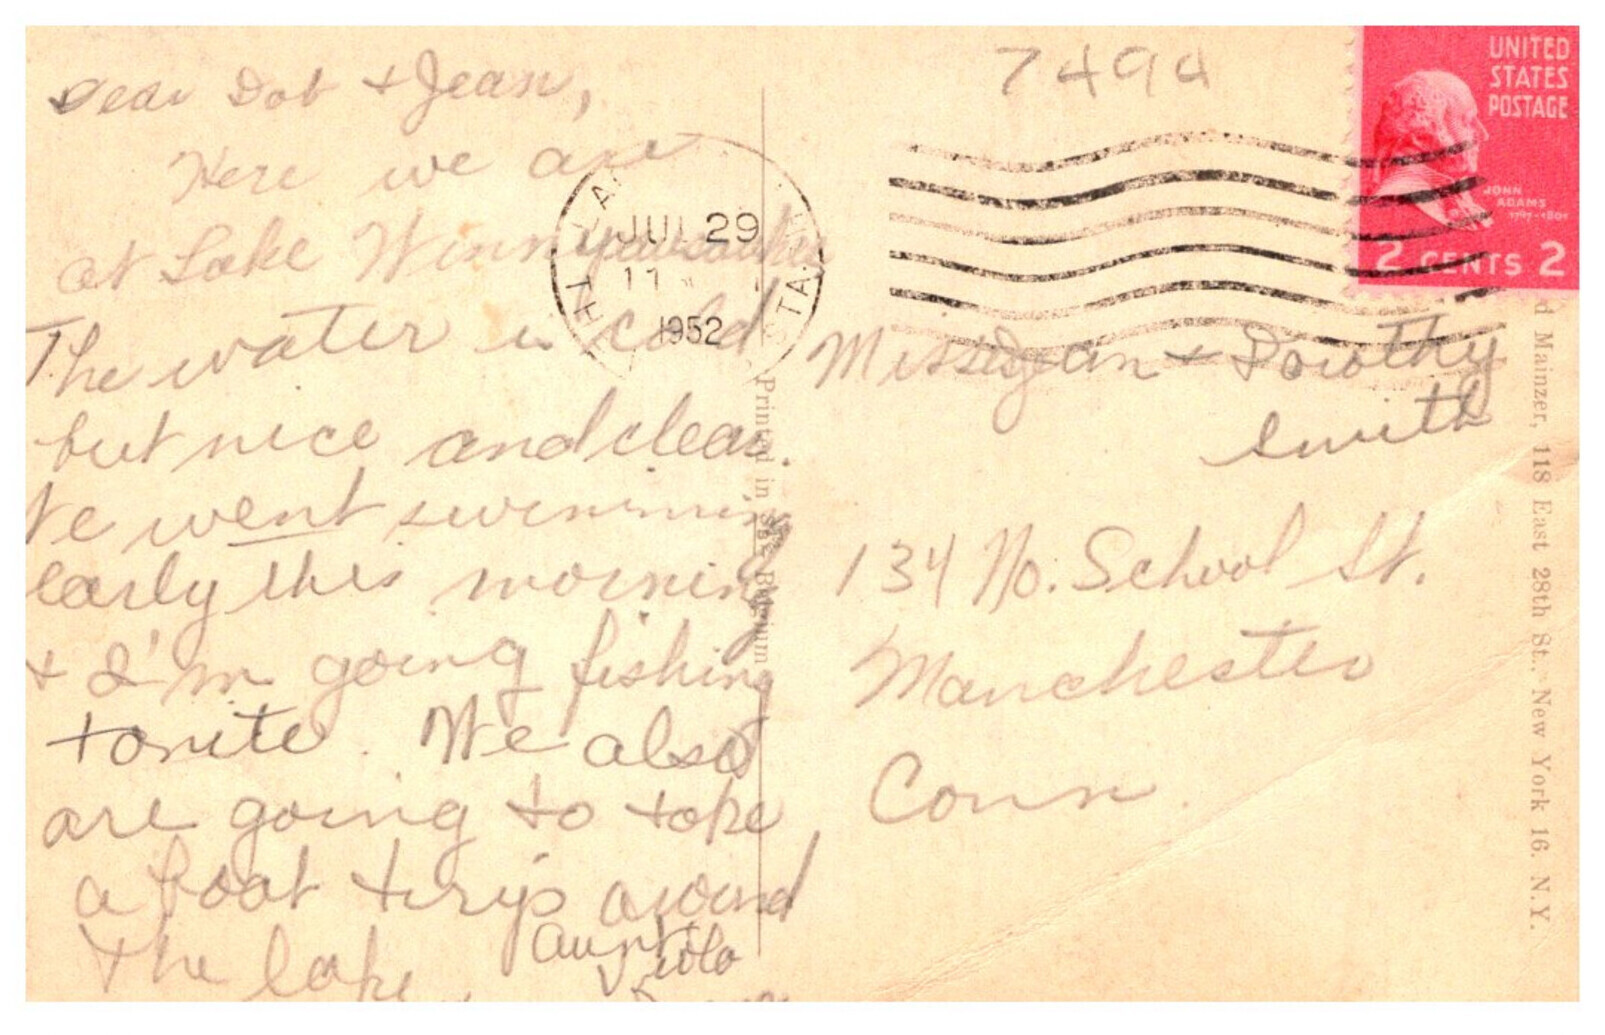 Dear Dot + Jean,
Here we are
at Lake Winnipesaukee
The water is cold
but nice and clear.
We went swimming
early this morning
+ I'm going fishing
tonite. We also
are going to take
a boat trip around
the lake.
Aunt Viola
7494
JUL 29
11
1952
STA.
UNITED
STATES
POSTAGE
JOHN
ADAMS
1797-1801
2 CENTS 2
Misses Jean + Dorothy
Smith
134 No. School St.
Manchester
Conn.
Printed in Belgium
d Mainzer, 118 East 28th St., New York 16. N.Y.